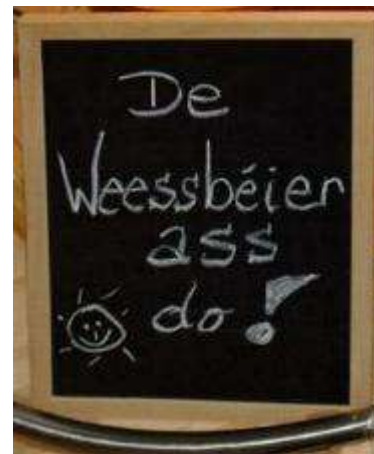 De
Weessbéier
ass
do!